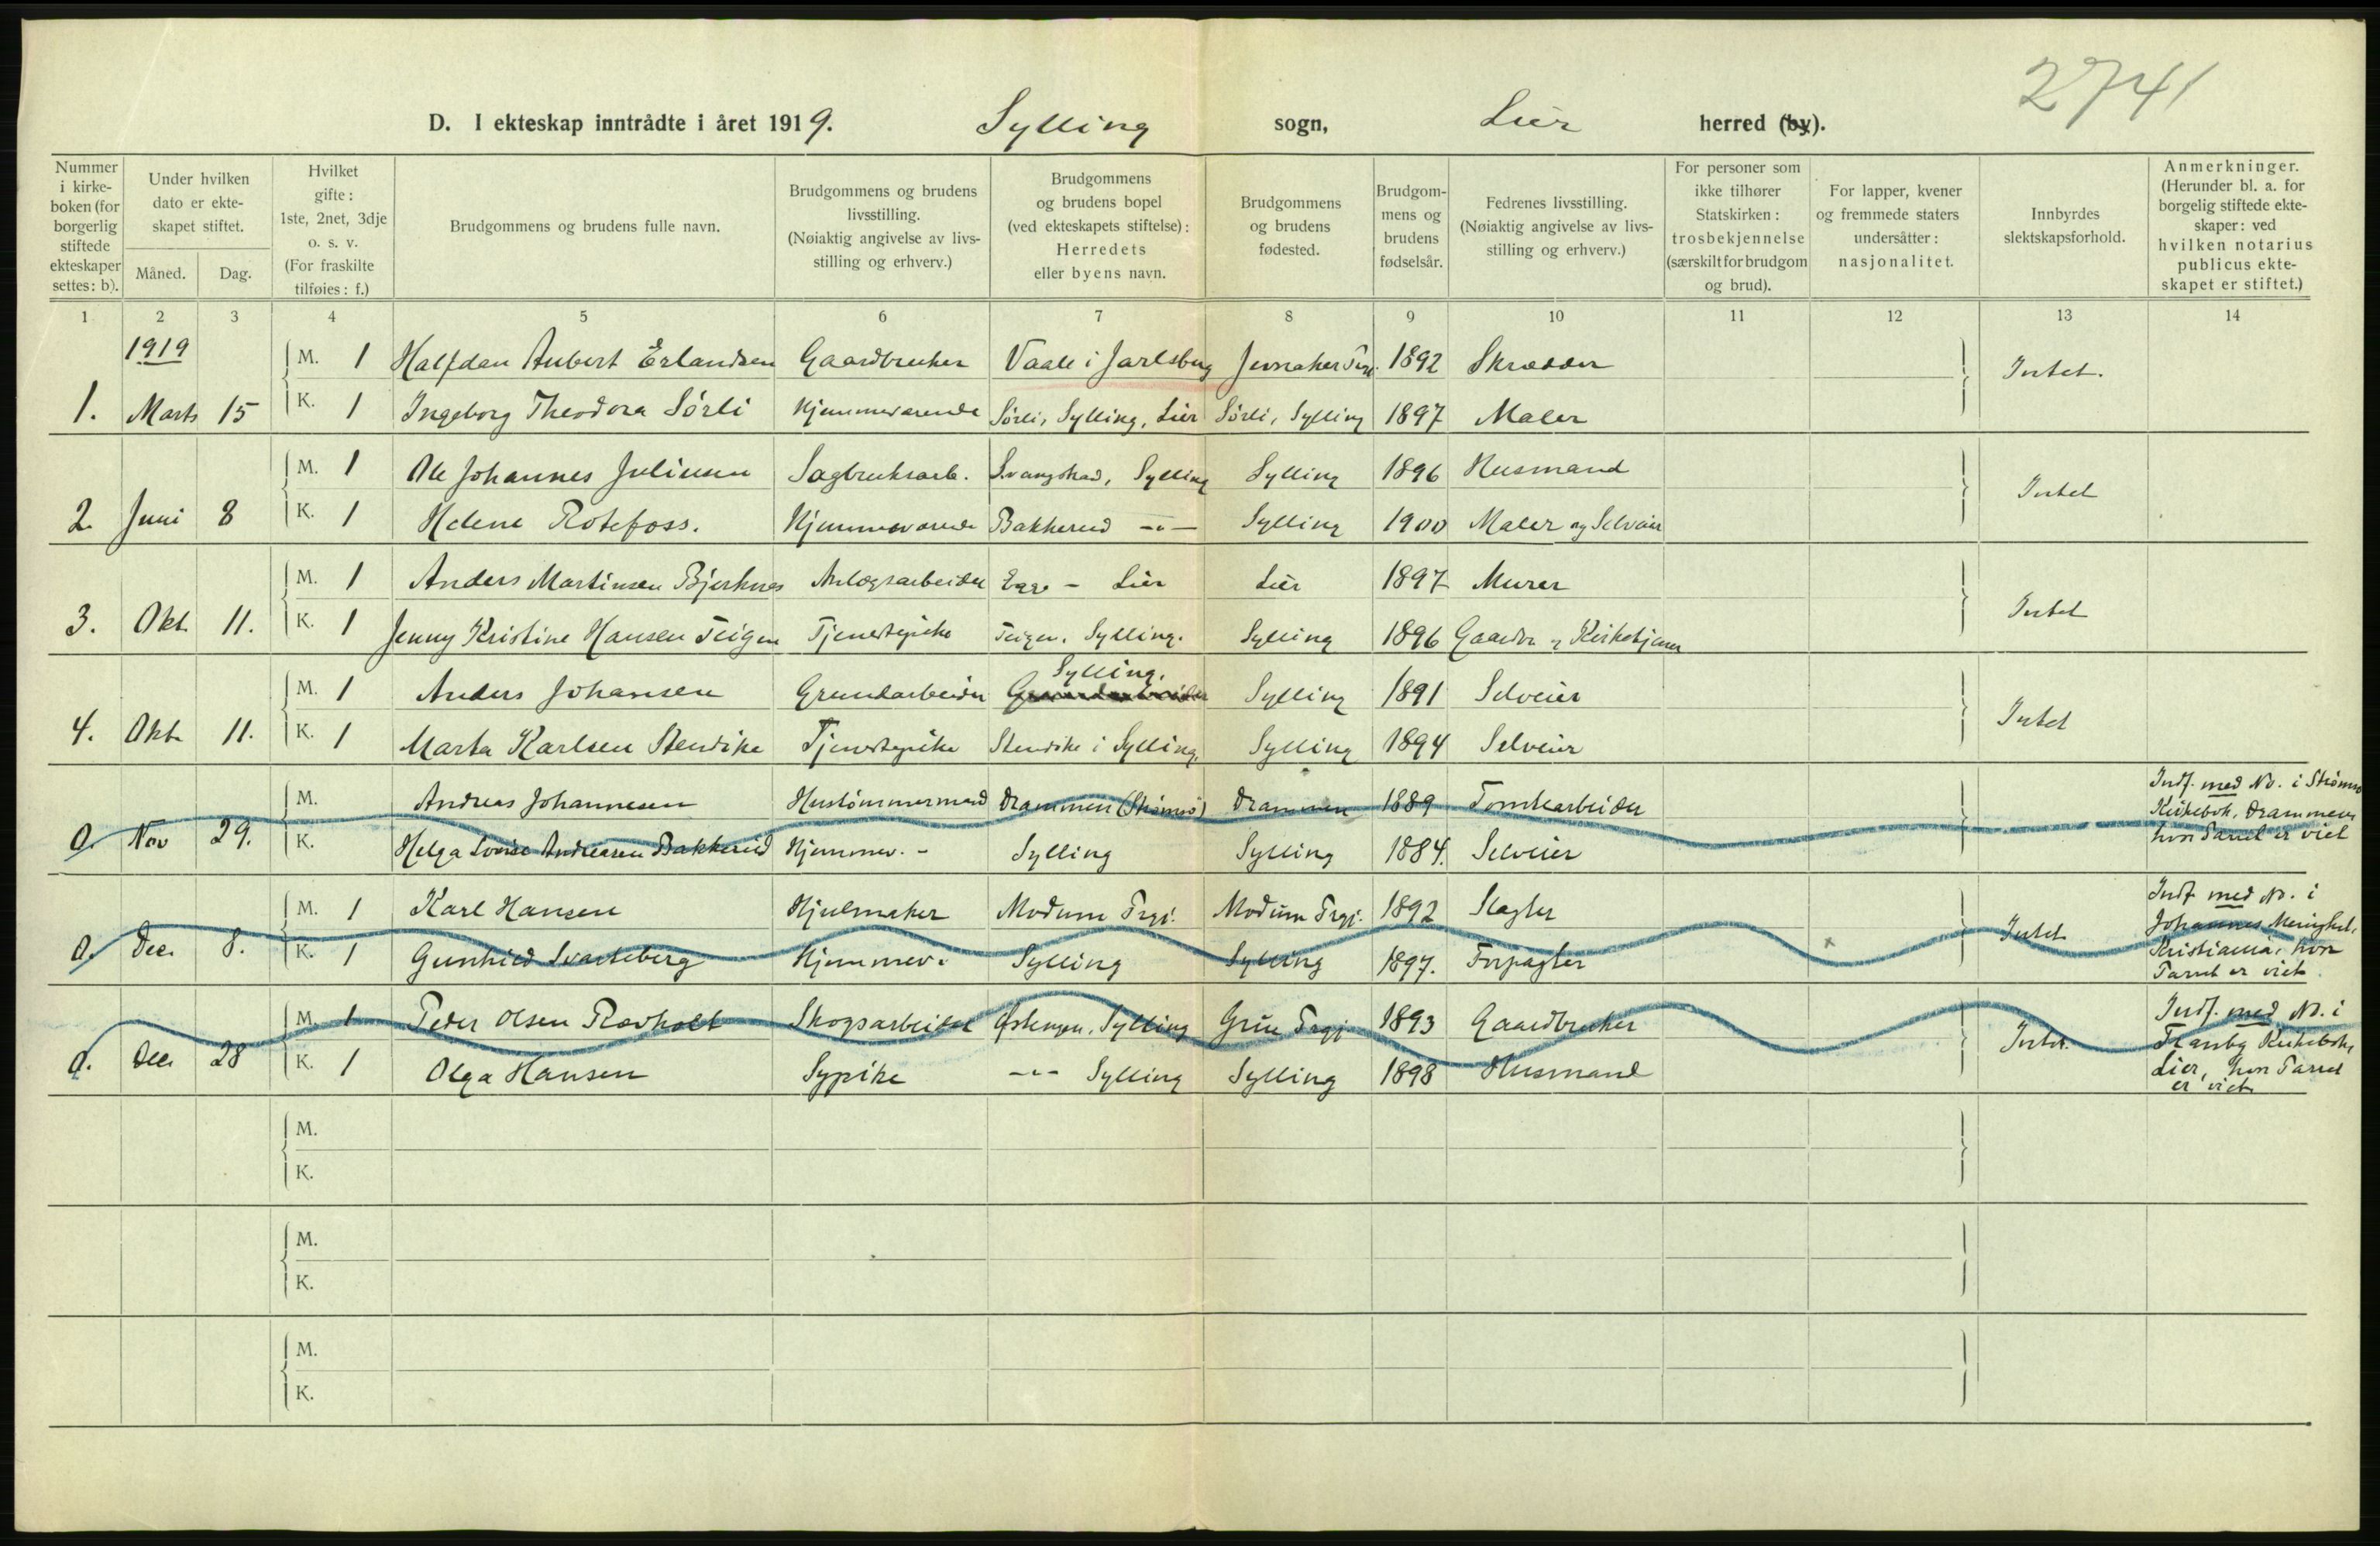 2741
D. I ekteskap inntrådte i året 1919. Sylling sogn, Lier herred (by).
Nummer i kirke-boken (for borgerlig stiftede ekteskaper settes: b).
Under hvilken dato er ekte-skapet stiftet.
Måned. Dag.
Hvilket gifte: 1ste, 2net, 3dje o. s. v. (For fraskilte tilføies: f.)
Brudgommens og brudens fulle navn.
Brudgommens og brudens livsstilling. (Nøiaktig angivelse av livs-stilling og erhverv.)
Brudgommens og brudens bopel (ved ekteskapets stiftelse): Herredets eller byens navn.
Brudgommens og brudens fødested.
Brudgom-mens og brudens fødselsår.
Fedrenes livsstilling. (Nøiaktig angivelse av livs-stilling og erhverv.)
For personer som ikke tilhører Statskirken: trosbekjennelse (særskilt for brudgom og brud).
For lapper, kvener og fremmede staters undersåtter: nasjonalitet.
Innbyrdes slektskapsforhold.
Anmerkninger. (Herunder bl. a. for borgelig stiftede ekte-skaper: ved hvilken notarius publicus ekte-skapet er stiftet.)
1 2 3 4 5 6 7 8 9 10 11 12 13 14
1919
M. 1 Halfdan Aubert Erlandsen Gaardbruker Vaale i Jarlsberg Jevnaker 1892 Skrædder Intet.
1. Marts 15 K. 1 Ingeborg Theodora Sørli Hjemmeværende Sørli, Sylling, Lier Sørli, Sylling 1897 Maler
M. 1 Ole Johannes Juliusen Sagbruksarb. Svangstrad, Sylling Sylling 1896 Husmand Intet
2. Juni 8 K. 1 Helene Rotefoss. Hjemmeværende Bakkerud -"- Sylling 1900 Maler og Selveier
M. 1 Anders Martinsen Bjerknes Anlægsarbeider Egge - Lier Lier 1897 Murer Intet
3. Okt. 11. K. 1 Jenny Kristine Hansen Teigen Tjenestepike Teigen, Sylling. Sylling 1896 Gaardbr. og Kirketjener
Sylling.
M. 1 Anders Johansen Grundarbeider Grundarbeider Sylling 1891 Selveier Intet
4. Okt. 11. K. 1 Marta Karlsen Stendike Tjenestepike Stendike i Sylling, Sylling 1894 Selveier
M. Andreas Johannesen Hustømmermand Drammen (Strømsø) Drammen 1889 Tomtearbeider
0. Nov 29. K. Helga Lovise Andreasen Bakkerud Hjemmev. - Sylling Sylling 1884. Selveier
Indf. med No. i Strømsø
Kirkebok, Drammen,
hvor Parret er viet
M. 1 Karl Hansen Hjulmaker Modum Prgj. Modum Prgj. 1892 Slagter Intet
0. Dec. 8. K. 1 Gunhild Svarteberg Hjemmev. Sylling Sylling 1897. Forpagter
Indf. med No. i
Johannes Menighet,
Kristiania, hvor
Parret er viet.
M. 1 Peder Olsen Rovholt Skogsarbeider Østengen, Sylling Grue Prgj 1893 Gaardbruker Intet.
0. Dec. 28 K. 1 Olga Hansen Sypike -"- Sylling Sylling 1898 Husmand
Indf. med No. i
Tranby Kirkebok,
Lier, hvor Parret
er viet
M.
K.
M.
K.
M.
K.